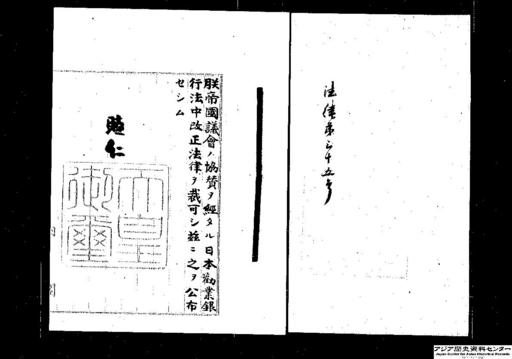 法律第三十五号
朕帝國議會ノ協賛ヲ經タル日本勸業銀
行法中改正法律ヲ裁可シ茲ニ之ヲ公布
セシム
睦仁
天皇
御璽
内閣
アジア歴史資料センター
Japan Center for Asian Historical Records